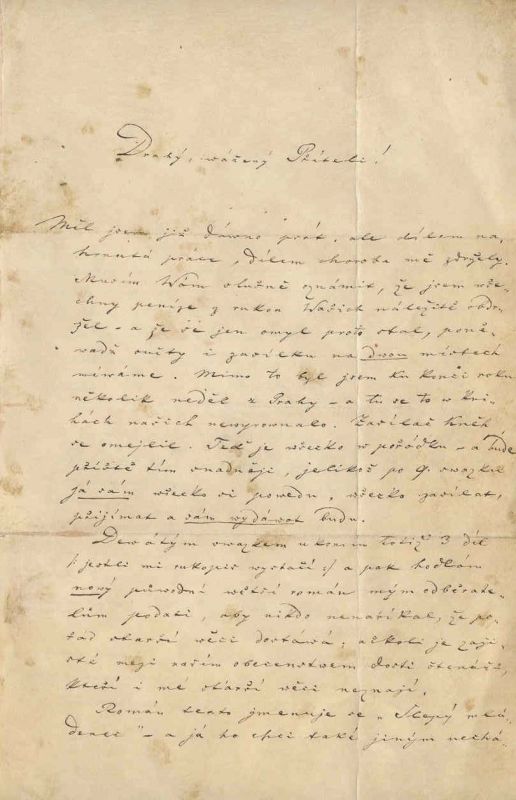 Drahý, vážený Příteli!
Měl jsem již dávno psát, ale dílem na,
hrnutá práce, dílem choroba mě zdržely.
Musím Wám slušně oznámit, že jsem vše,
chny peníze z rukou Wašich náležitě obdr,
žel – a že se jen omyl proto stal, poně,
wadž účty i zasilku na dwou místech
míwáme. Mimo to byl jsem ku konci roku
několik neděl z Prahy – a tu se to w kni,
hách našich newyrownalo. Zasilač knih
se omejlil. Teď je wšecko w pořádku – a bude
příště tím snadněji, jelikož po 9. swazku
já sám wšecko si powedu, wšecko zasílat,
přijímat a sám wydáwat budu.
Dewátým swazkem ukončím totiž 3 díl
/: jestli mi rukopis wystačí :/ a pak hodlám
nowý půwodní wětší román mým odběrate,
lům podati, aby nikdo nenaříkal, že po,
řád starší wěci dostáwá; ačkoli je zaji,
sté mezi naším obecenstwem dosti čtenářů,
kteří i mé starší wěci neznají.
Román tento jmenuje se „Slepý mlá,
denec" – a já ho chci také jiným nechá,